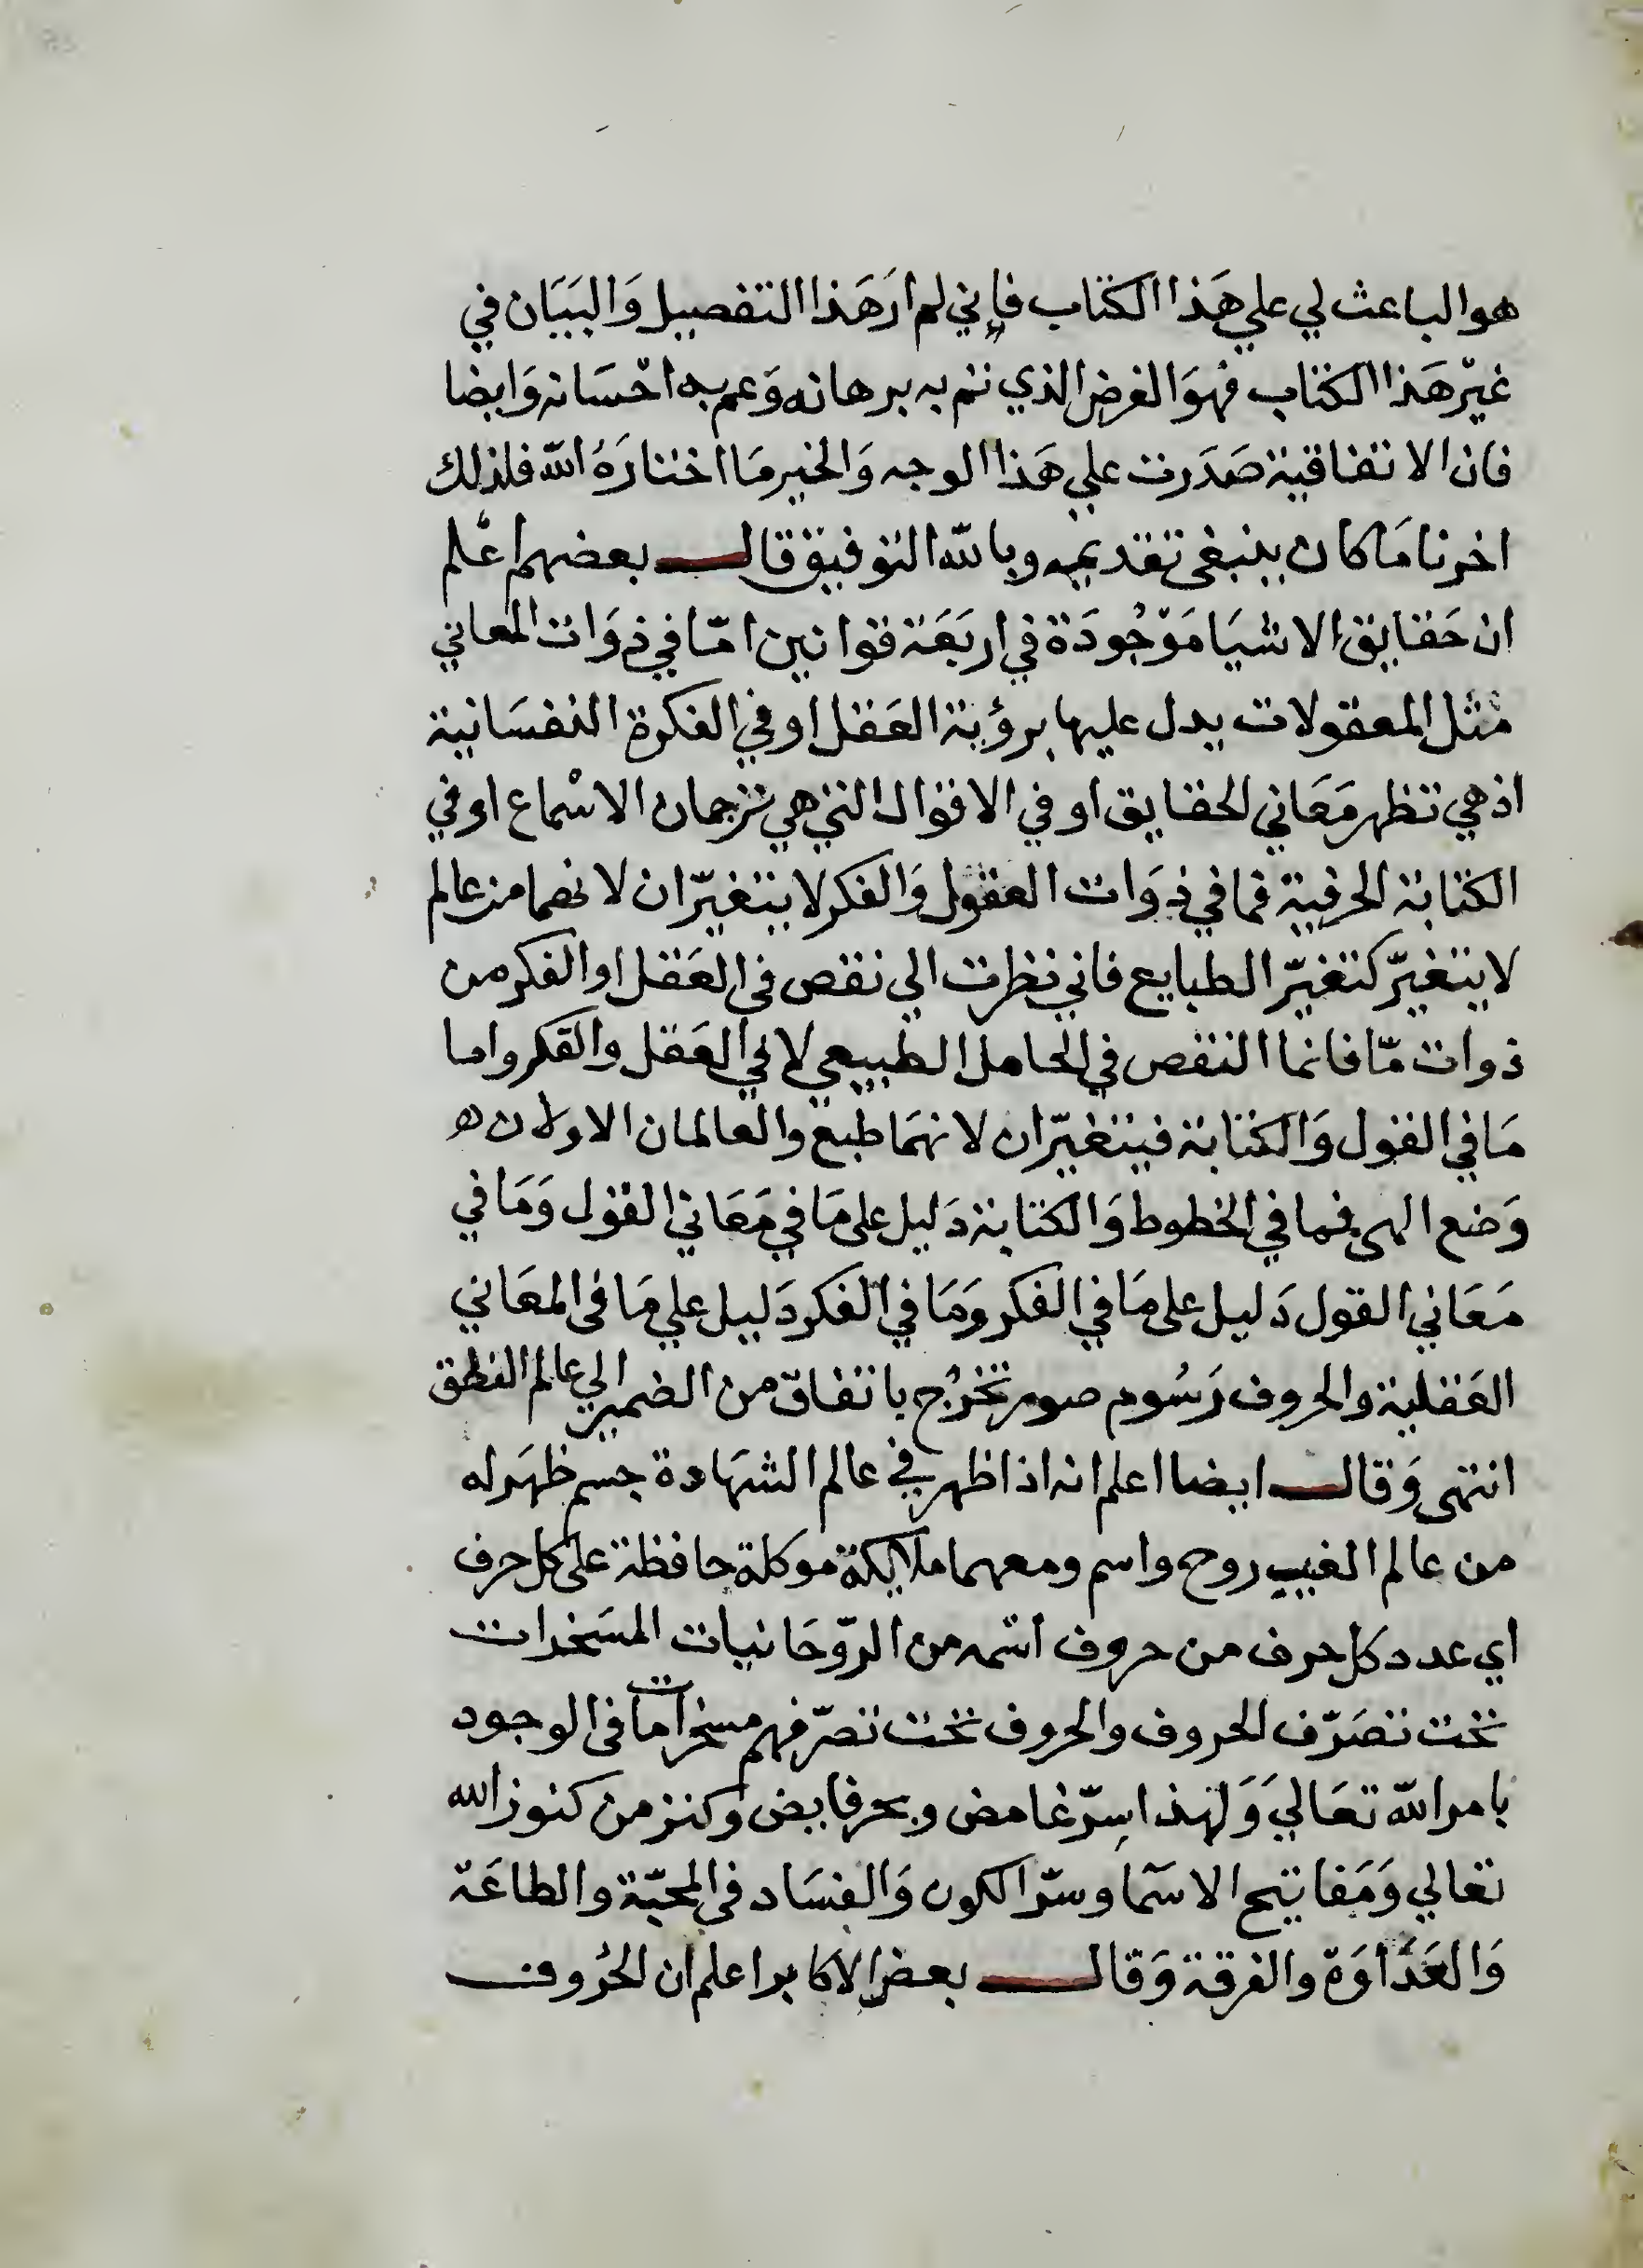 هو الباعث لي علي هَذا الكتاب فإني لم ارَ هَذا التفصيل وَالبَيَان في
غيّر هَذا الكتاب فهوَ الغرض الذي تم به برهانه وَعم به احْسَانه وَايضا
فان الاتفاقية صَدَرت علي هَذا الوجه وَالخير مَا اختارَهُ اللّه فلذلك
اخرنا مَا كان ينبغي تقديمه وبا للّه التوفيق قال بعضهم اعْلم
ان حَقايق الاشيَا مَوْجُودَة في اربَعَة قوانين امّا في ذوَات المعاني
مثل المعقولات يدل عليها برؤية العَقل او في الفكرة النفسَانية
اذ هي تظهر مَعَاني الحقايق او في الاقوال التي هي ترجمان الاسْماع او في
الكتابة الحرفية فما في ذوَات العقول وَالفكر لا يتغيّران لانهما من عالم
لا يتغيّر كتغيّر الطبايع فاني نظرت الي نقص في العَقل او الفكر من
ذوات مّا فانما النقص في الحامل الطبيعي لا في العَقل والفكر واما
مَا في القول وَالكتابة فيتغيّران لانهمَا طبع والعالمان الاولان ه
وَضع الهي فما في الخطوط وَالكتابة دَليل على مَا في مَعَاني القول وَمَا في
مَعَاني القول دَليل على مَا في الفكر وَمَا في الفكر دَليل علي مَا في المعَاني
العَقلية والحروف رَسُوم صور تخرُج باتفاق من الضمير الي عالم النطق
انتهى وَقال ايضا اعلم انه اذا ظهر في عالم الشهَادة جسم ظهَر له
من عالم الغيب روح واسم ومعهما ملايكة موكلة حافظة على كل حرف
اي عدد كل حرف من حروف اسمه من الرّوحَانيات المسَخرات
تحت تصَرّف الحروف والحروف تحت تصرّفهم مسخرات ما في الوجود
بامر اللّه تعَالي وَلهذا سِرّ غامض وبحر فايض وكنز من كنوز الله
تعَالي وَمَفاتيح الاسمَا وسرّ الكون وَالفسَاد في المحبّة والطاعَة
وَالعَدَاوَة والفرقة وَقال بعض الاكابر اعلم ان الحُروف